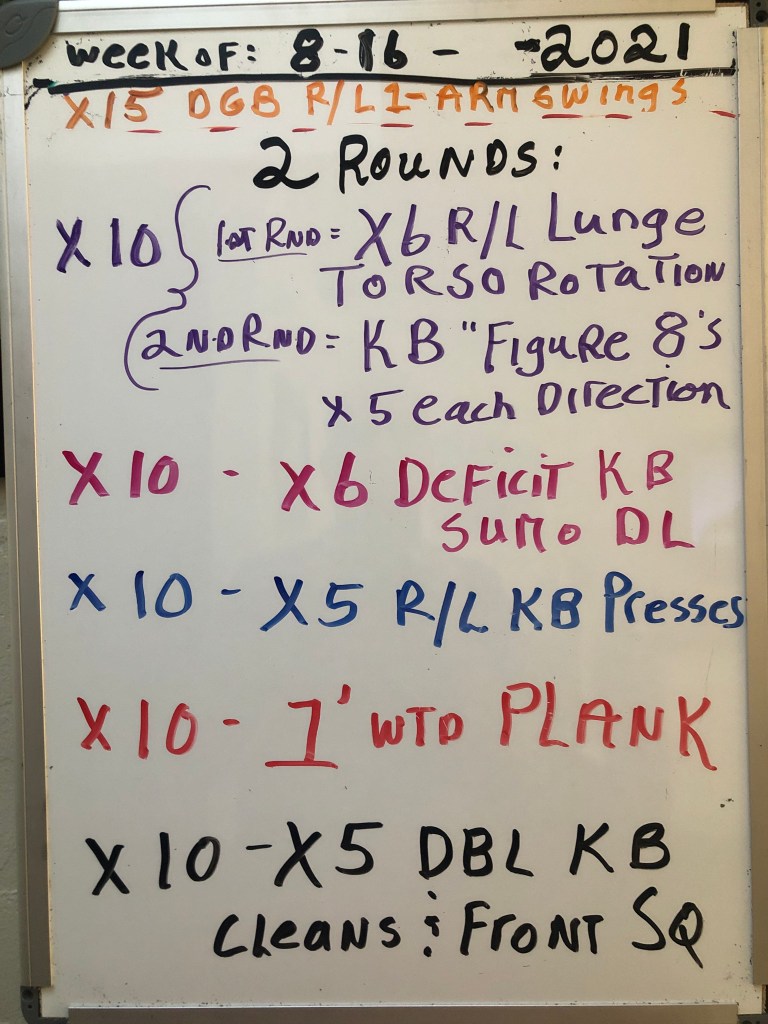 WEEK OF: 8-16 - -2021
X15 DGB R/L 1-ARM SWINGS
2 ROUNDS:
X10 { 1st RND = X6 R/L Lunge
TORSO ROTATION
2NDRND = KB "FIGURE 8's
x 5 each DIRECTION
X 10 - X6 DEFICIT KB
SUMO DL
X 10 - X5 R/L KB Presses
X 10 - 1' WTD PLANK
X 10 - X5 DBL KB
CLEANS & FRONT SQ